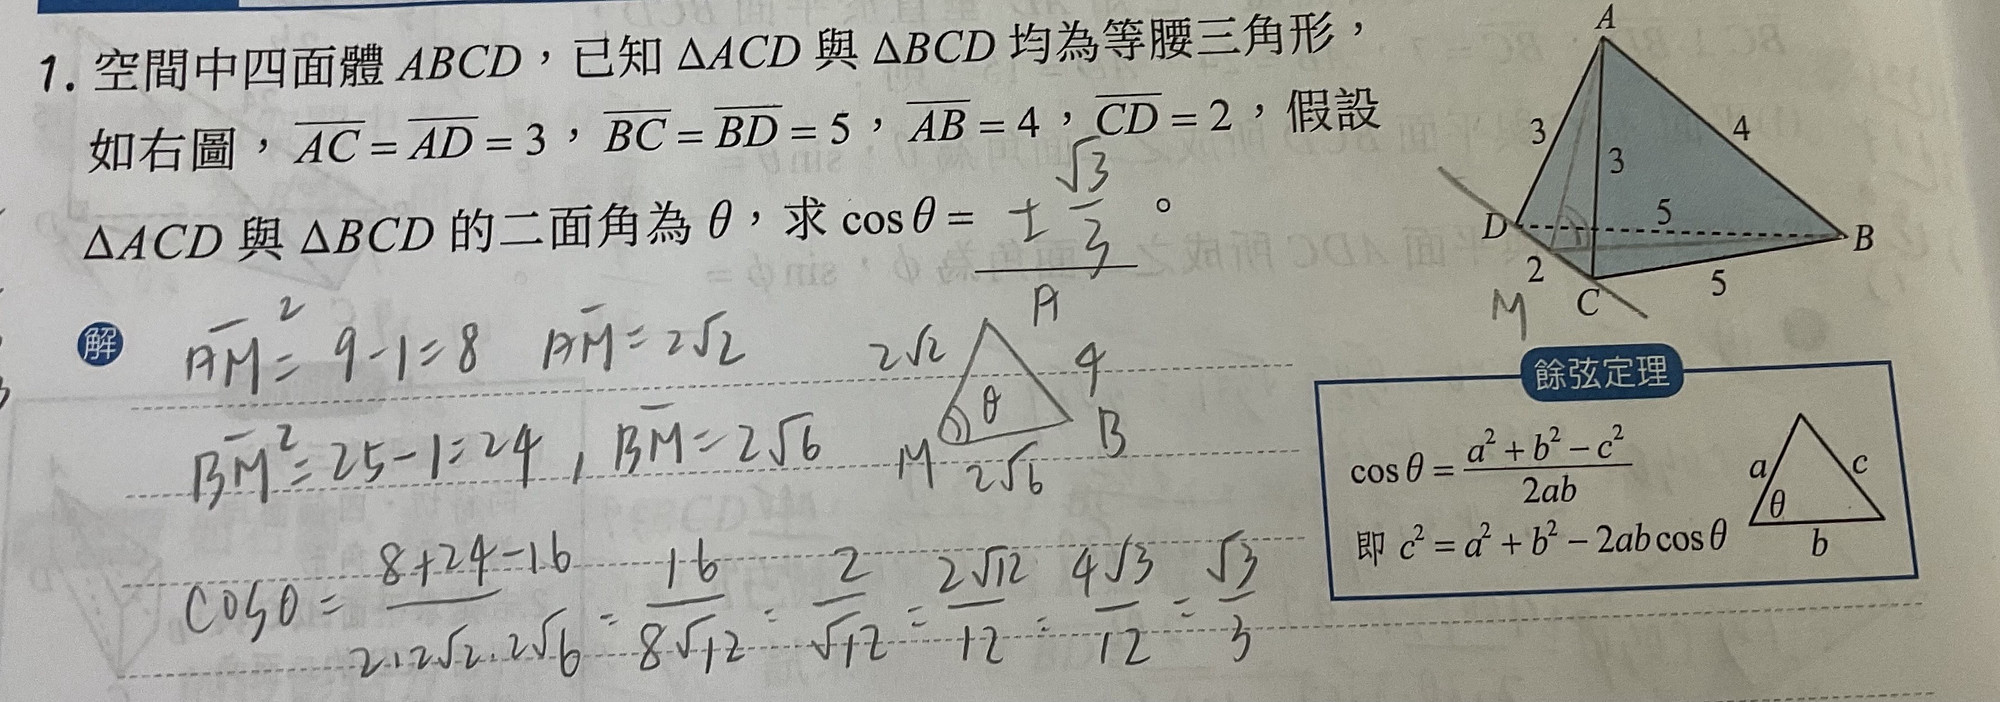 1. 空間中四面體 ABCD，已知 △ACD 與 △BCD 均為等腰三角形，
如右圖，AC = AD = 3，BC = BD = 5，AB = 4，CD = 2，假設
△ACD 與 △BCD 的二面角為 θ，求 cosθ = ± √3/3 。
A
3
3
4
D
5
B
2
5
M
C
解
AM² = 9-1=8 AM = 2√2
BM² = 25-1=24, BM = 2√6
A
2√2
4
θ
M
2√6
B
cosθ = (8+24-16)/(2·2√2·2√6) = 16/(8√12) = 2/√12 = 2√12/12 = 4√3/12 = √3/3
餘弦定理
cosθ = (a² + b² − c²)/(2ab)
即 c² = a² + b² − 2ab cosθ
a
c
θ
b